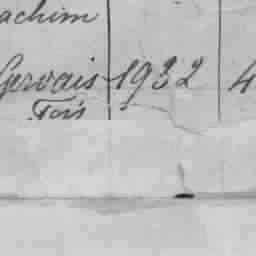 achim
Gervais 1932 4
Fois